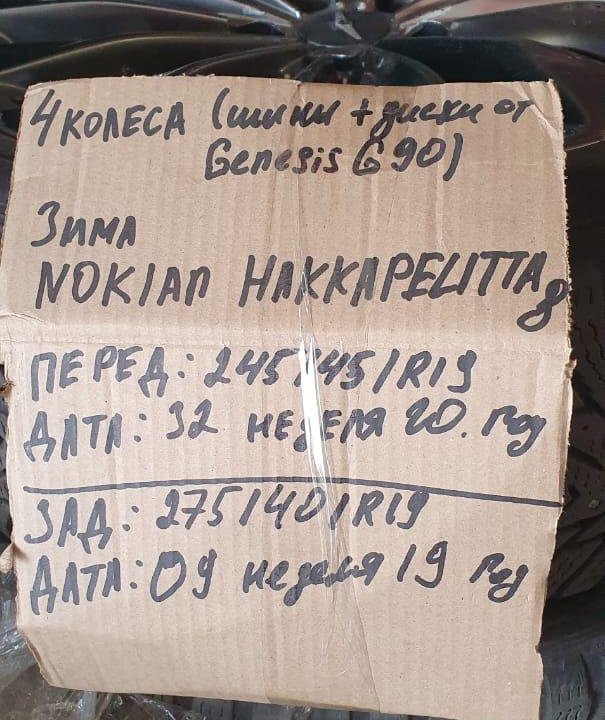 4 КОЛЕСА (шины + диски от
Genesis G 90)
Зима
NOKIAN HAKKAPELITTA 8
ПЕРЕД: 245/45/R19
ДАТА: 32 неделя 20. год
ЗАД: 275/40/R19
ДАТА: 09 неделя 19 год